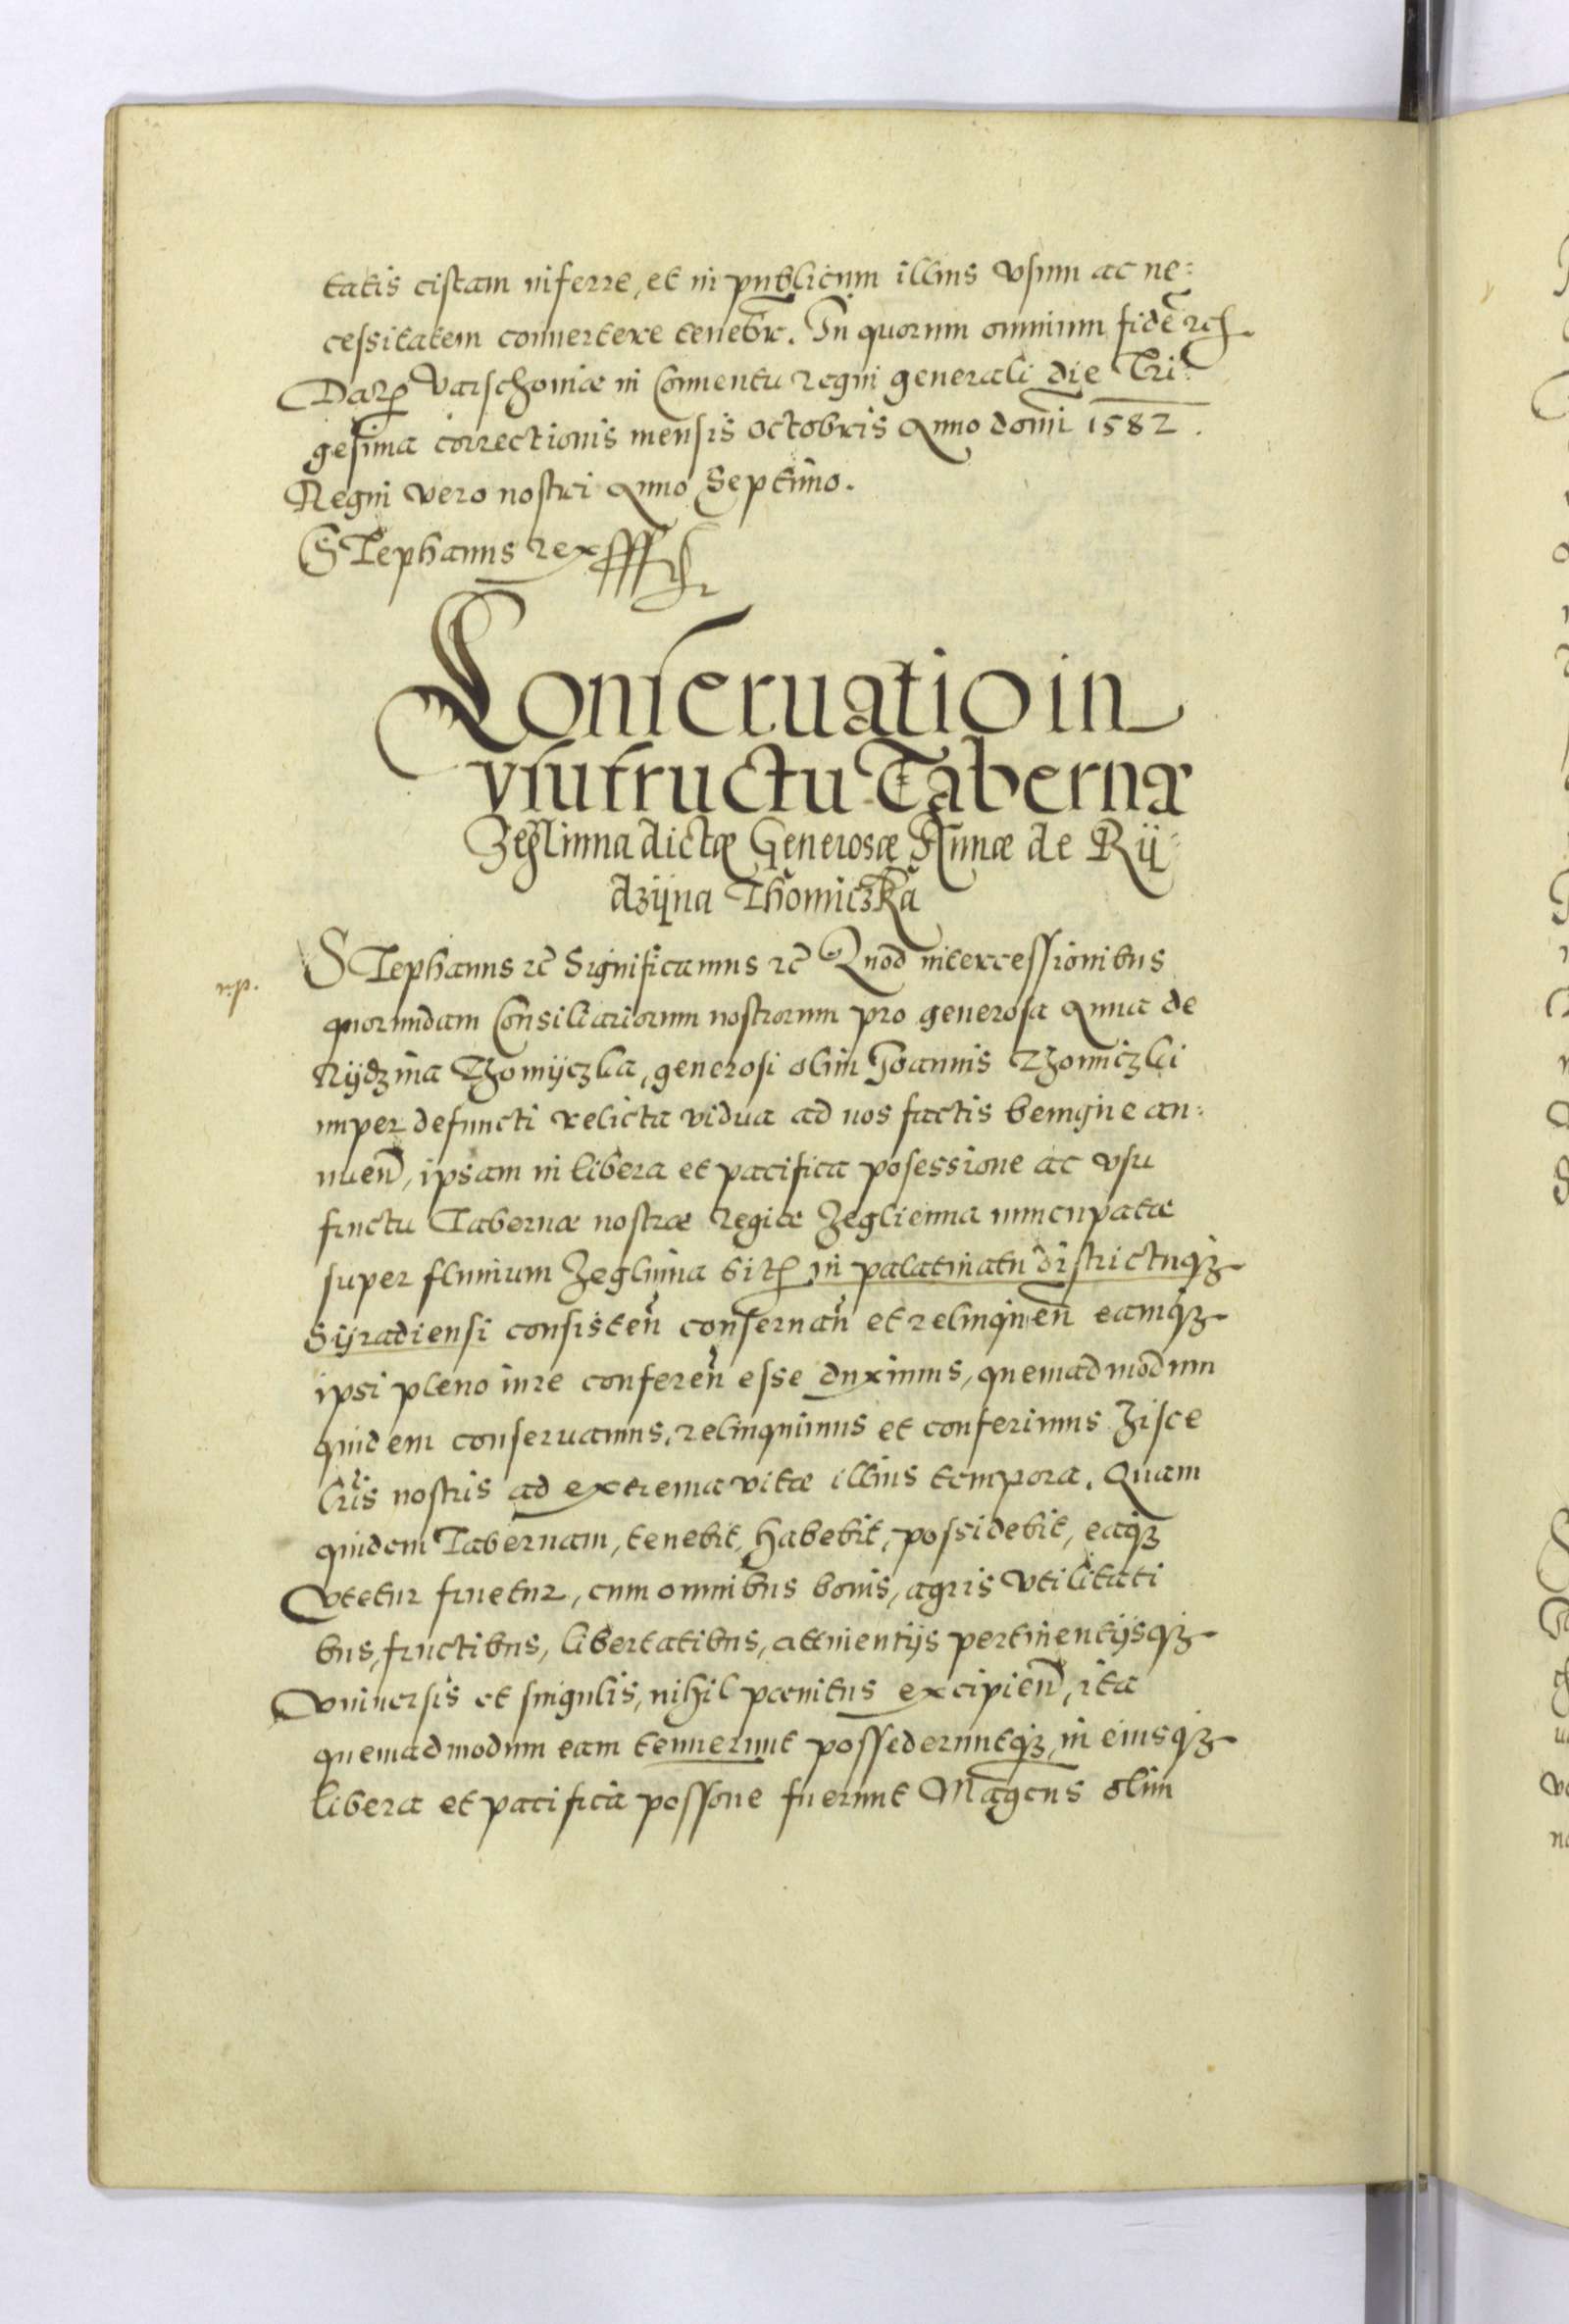 tatis cistam inferre, et in publicum illius vsum ac ne:
cessitatem conuertere tenebr. In quorum omnium fidē ꝛc
Datꝝ Varschouiæ in Conuentu regni generali die Tri:
gesima correctionis mensis octobris Anno domi 1582.
Regni vero nostri Anno Septimo.
STephanus rex
Conseruatio in
vsufructu Tabernæ
Zeglinna dictæ Generosæ Annæ de Rÿ:
dzÿna Thomiczka
STephanus ꝛc̄ Significamus ꝛc̄ Quod intercessionibus
quorundam Consiliariorum nostrorum pro generosa Anna de
Rÿdzina Thomÿczka, generosi olim Joannis Thomiczki
nuper defuncti relicta vidua ad nos factis benigne an:
nuen̄, ipsam in libera et pacifica posessione ac vsu
fructu Tabernæ nostræ Regiæ Zeglienna nuncupatæ
super fluuium Zeglinna sitꝝ in palatinatu districtuqꝫ
Sÿradiensi consisten̄ conseruan̄ et relinquen̄ eamqꝫ
ipsi pleno iure conferen̄ esse duximus, quemadmodum
quidem conseruamus, relinquimus et conferimus hisce
lris nostris ad extrema vitæ illius tempora. Quam
quidem Tabernam, tenebit, habebit, possidebit, eaqꝫ
vtetur fruetur, cum omnibus bonis, agris vtilitati
bus, fructibus, libertatibus, attinentÿs pertinentÿsqꝫ
vniuersis et singulis, nihil pœnitus excipien̄, ita
quemadmodum eam tenuerunt possederuntqꝫ, in eiusqꝫ
libera et pacifica possone fuerunt Magcus olim